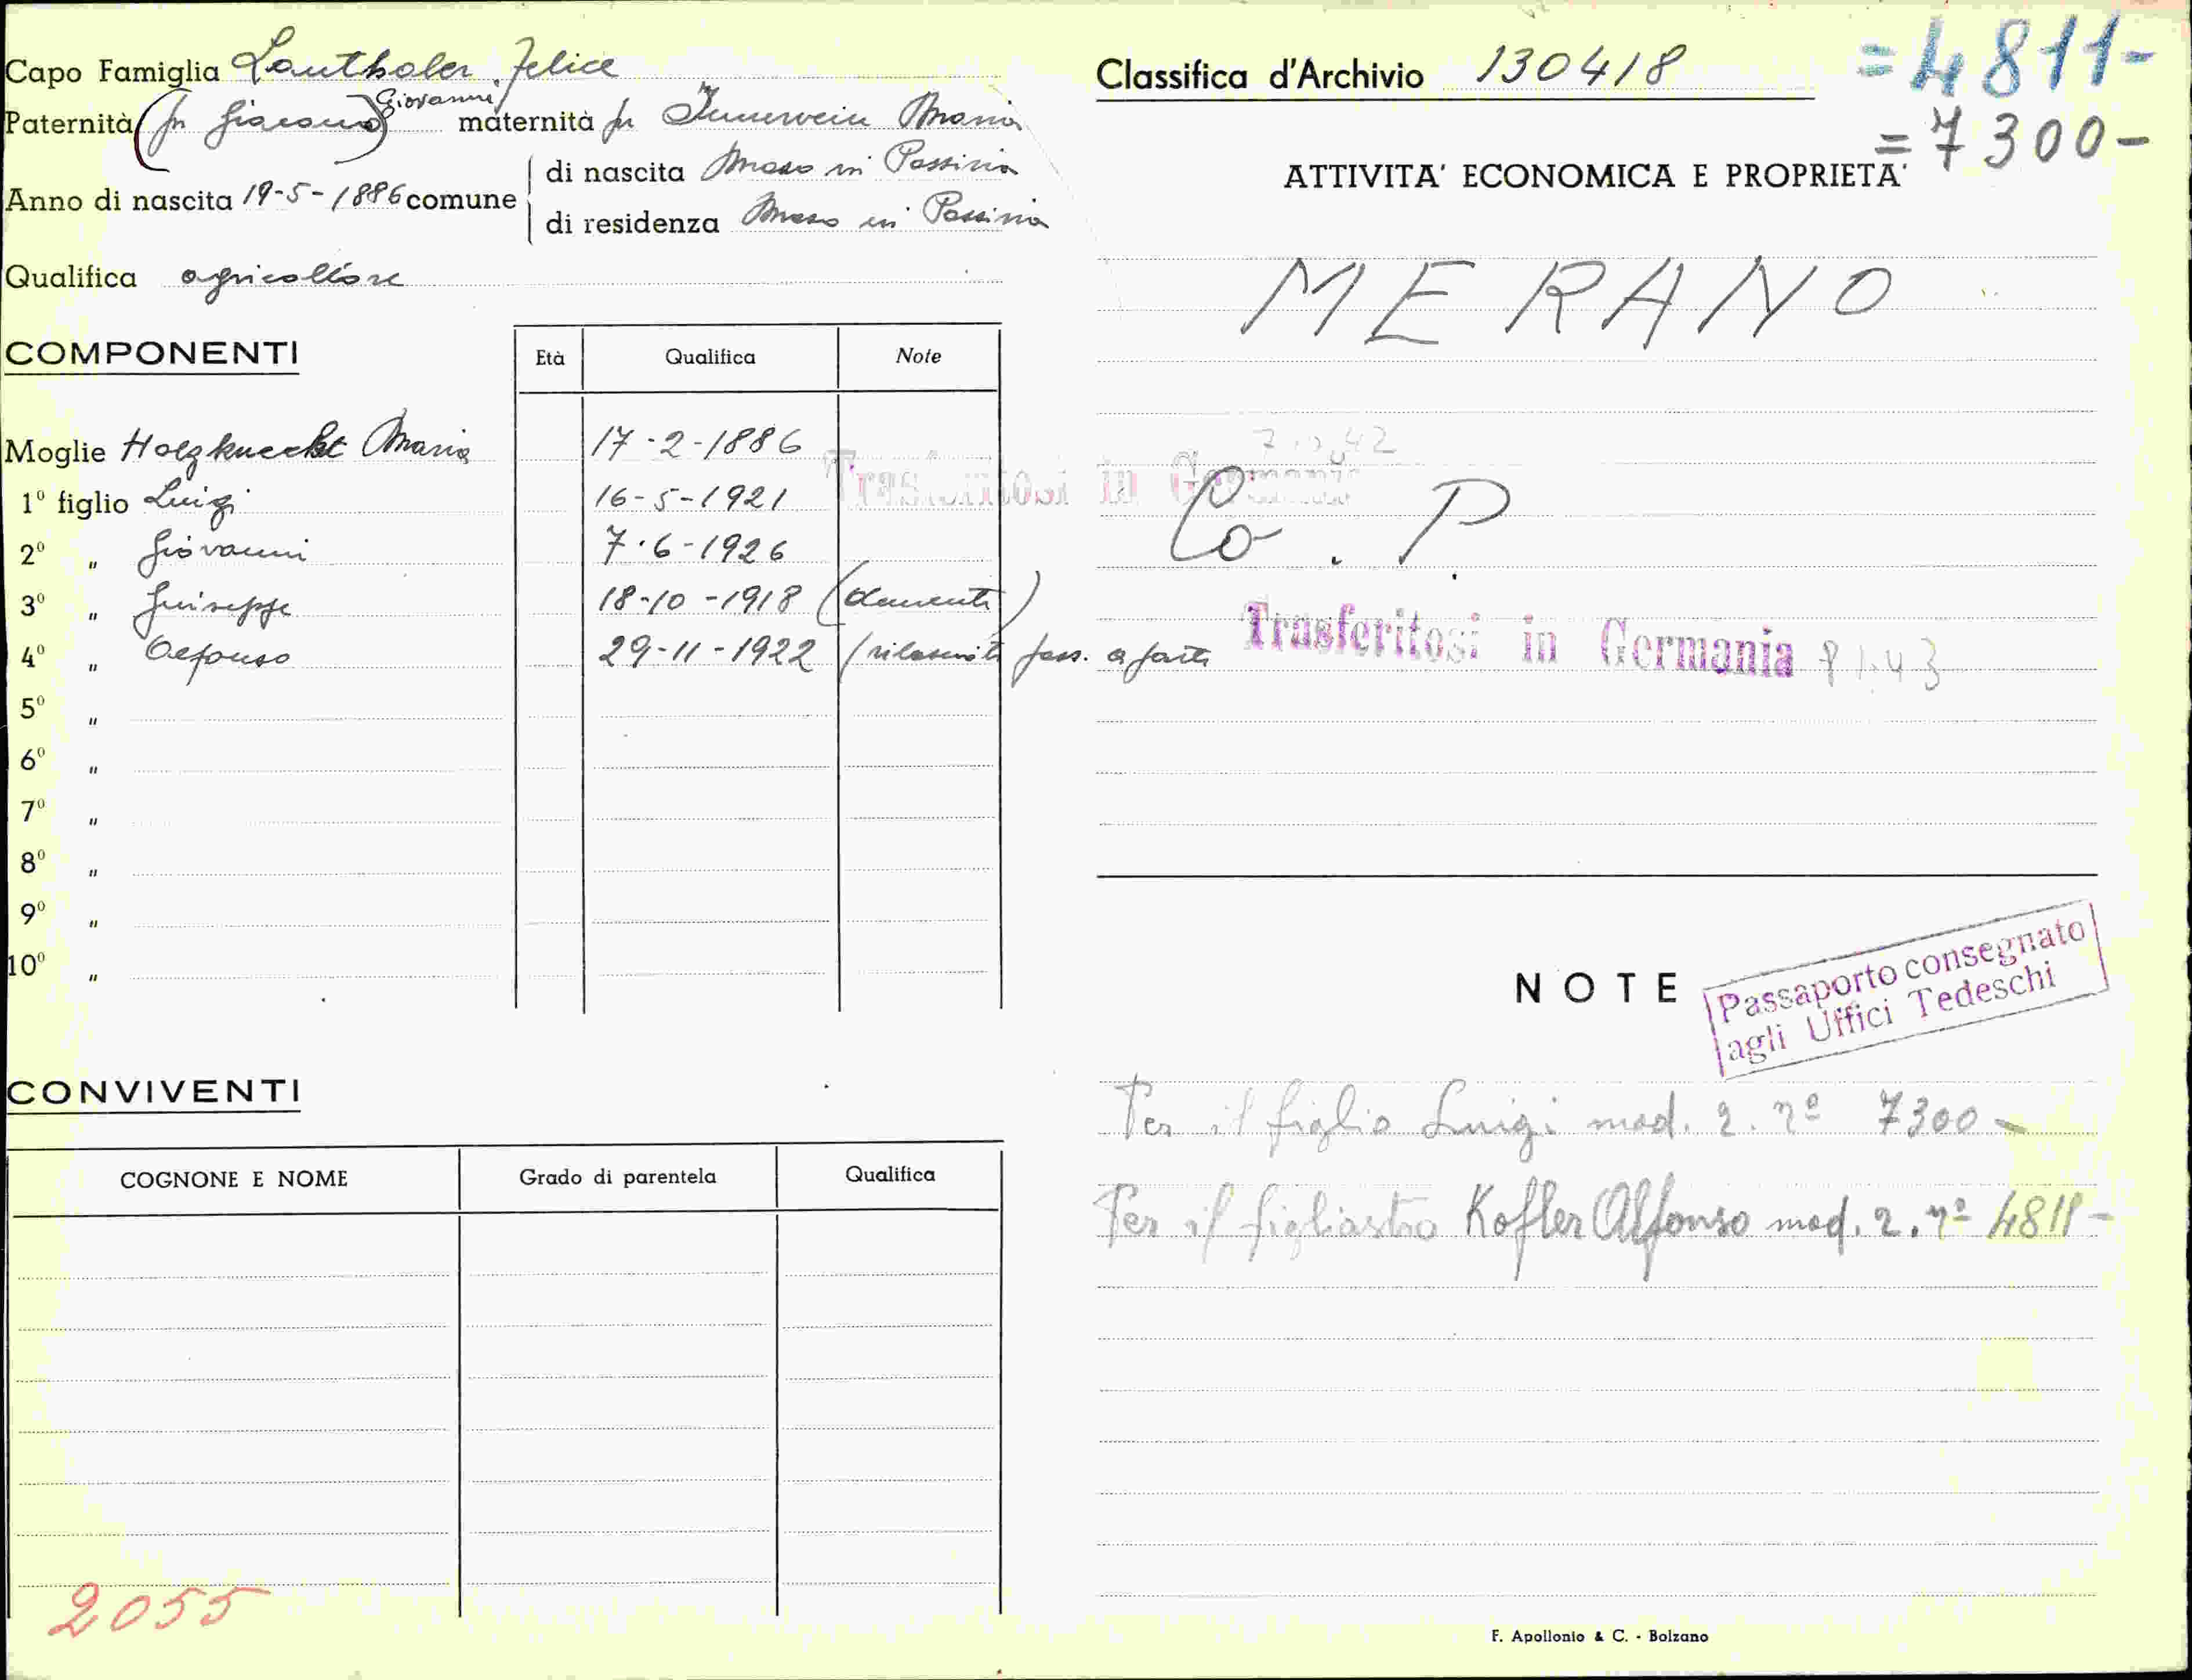 Capo Famiglia Lanthaler Felice
Paternità (fu Giacomo) Giovanni maternità fu Innerwein Maria
Anno di nascita 19-5-1886 comune
di nascita Moso in Passiria
di residenza Moso in Passiria
Qualifica agricoltore
COMPONENTI
Età Qualifica Note
Moglie Holzknecht Maria 17-2-1886
1º figlio Luigi 16-5-1921
2º " Giovanni 7-6-1926
3º " Giuseppe 18-10-1918 (demente)
4º " Alfonso 29-11-1922 (rilasciato pass. a parte
5º "
6º "
7º "
8º "
9º "
10º "
CONVIVENTI
COGNONE E NOME Grado di parentela Qualifica
2055
Classifica d'Archivio 130418
=4811-
=7300-
ATTIVITA' ECONOMICA E PROPRIETA'
MERANO
Trasferitosi in Germania
Co. P.
Trasferitosi in Germania 8 1.43
NOTE
Passaporto consegnato
agli Uffici Tedeschi
Per il figlio Luigi mod. 2. nº 7300-
Per il figliastro Kofler Alfonso mod. 2. nº 4811-
F. Apollonio & C. - Bolzano